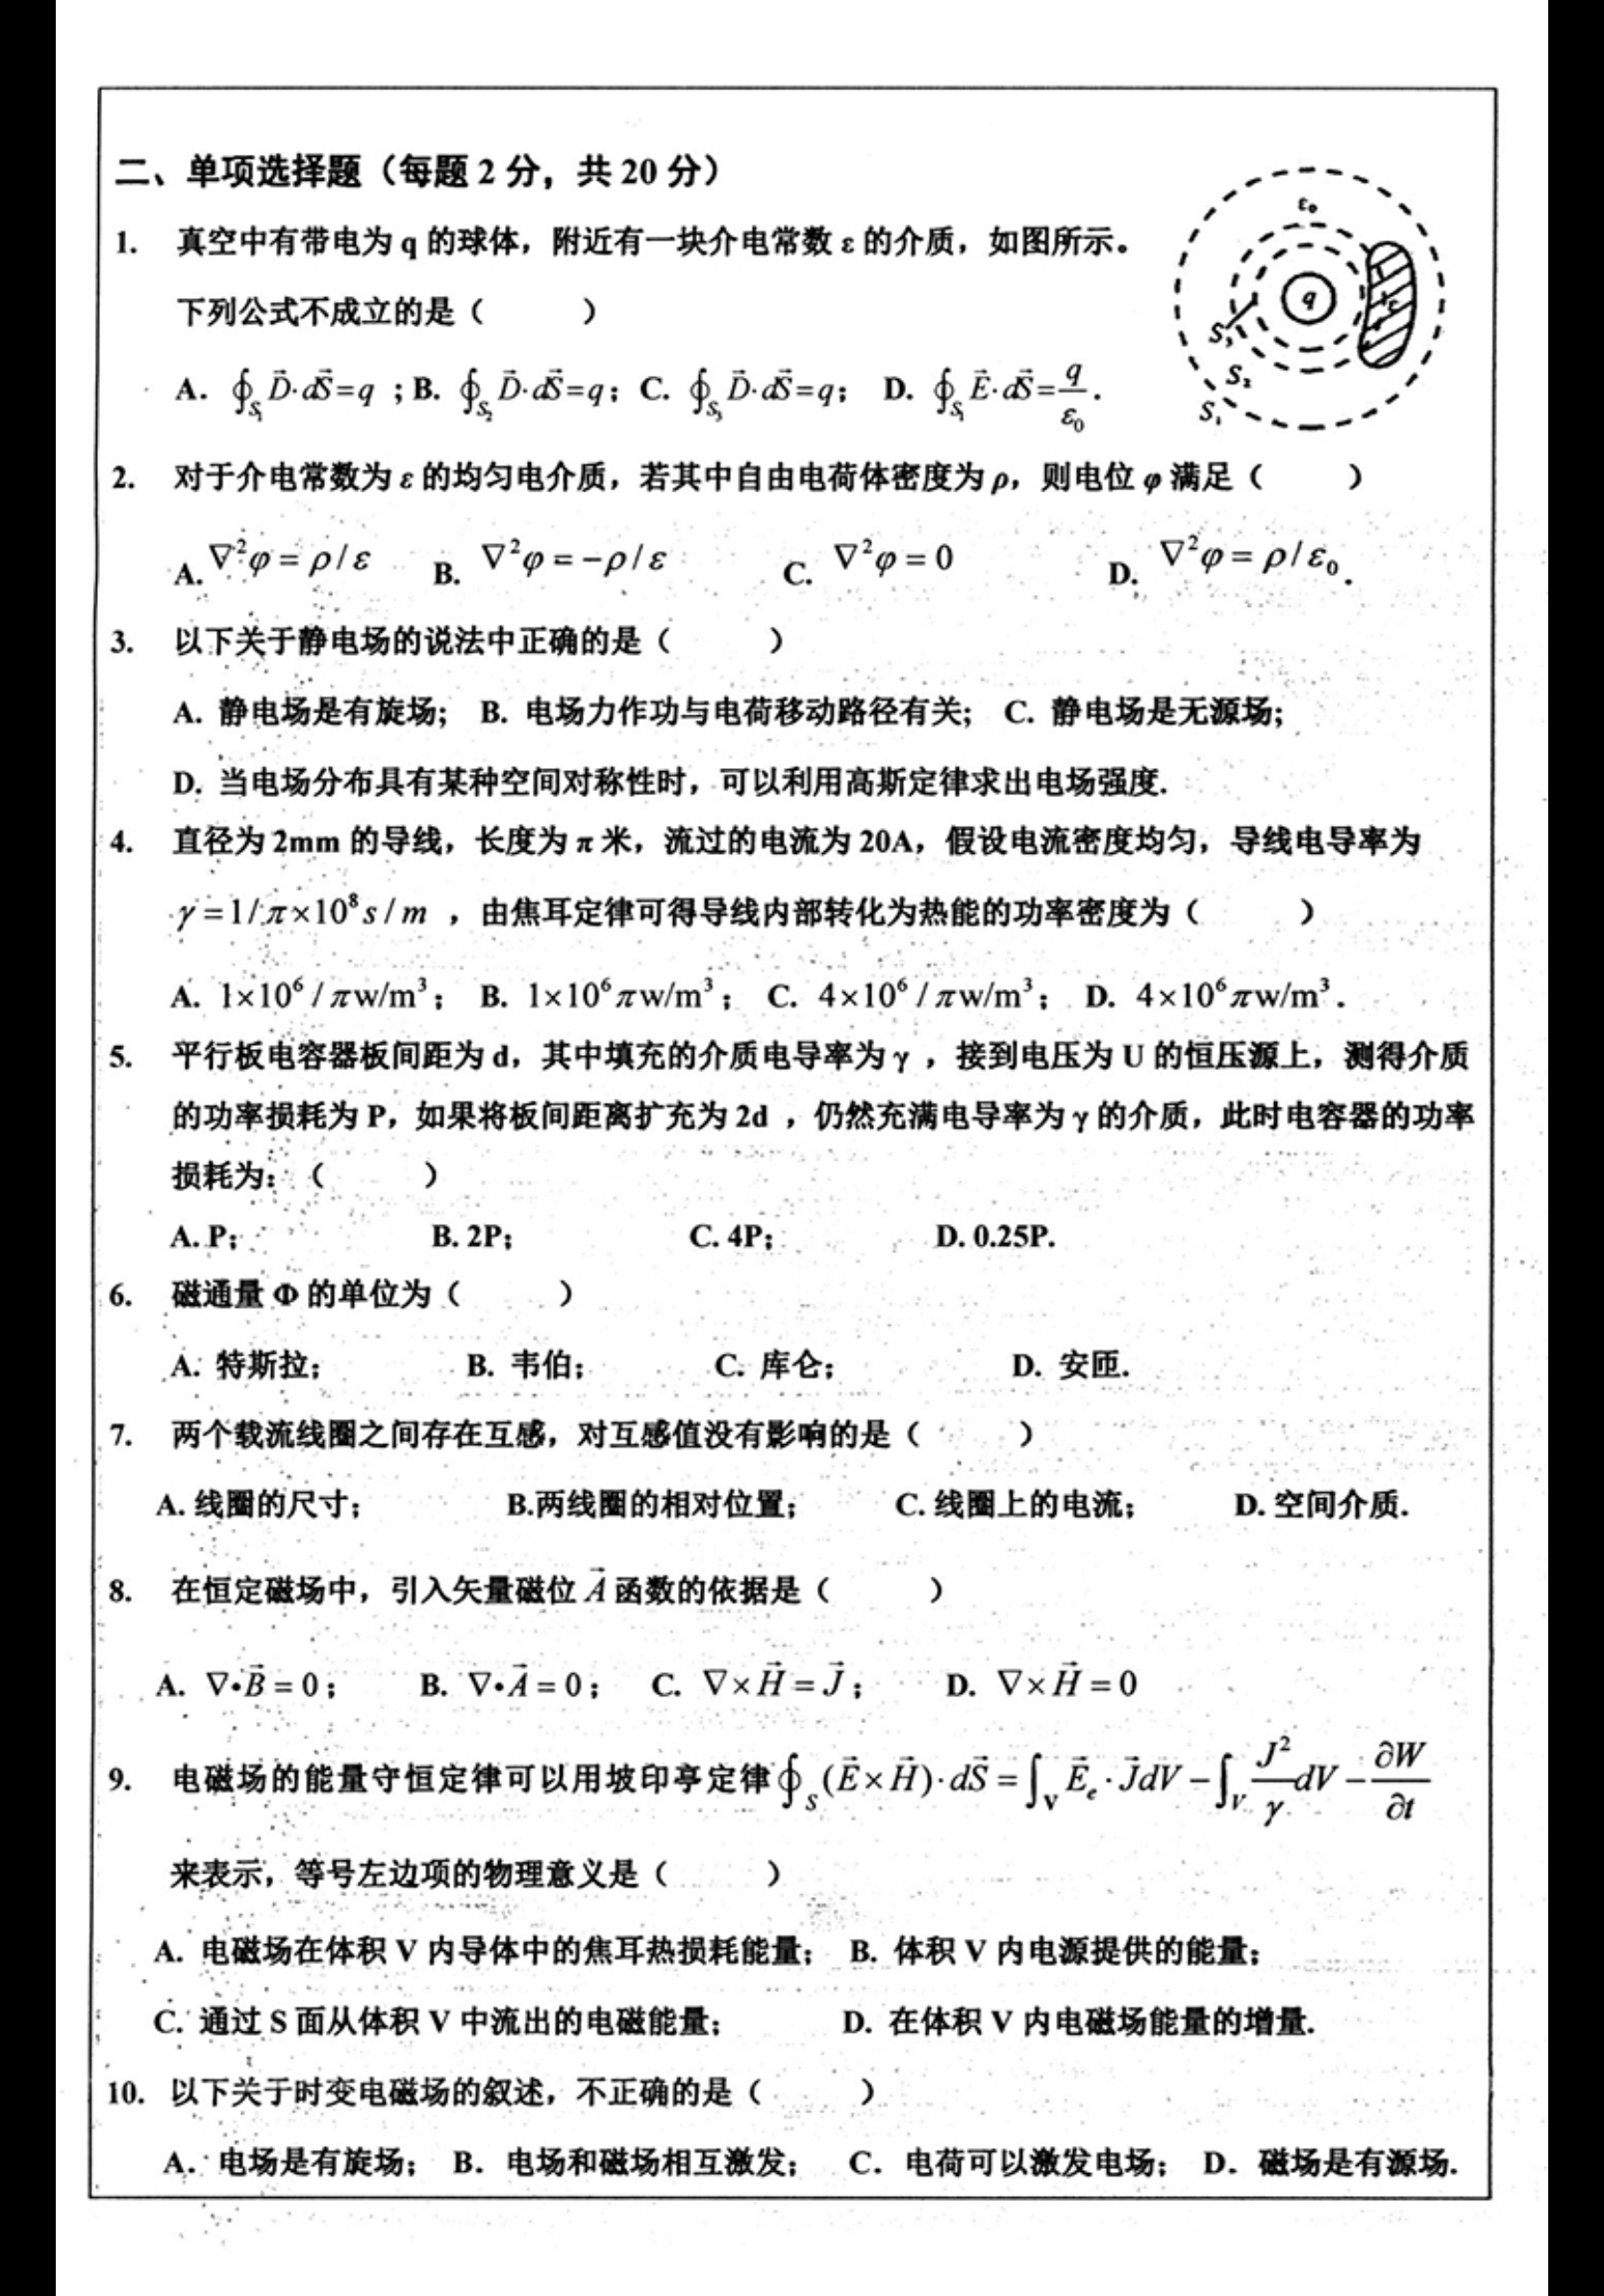 二、单项选择题（每题 2 分，共 20 分）
1. 真空中有带电为 q 的球体，附近有一块介电常数 ε 的介质，如图所示。
下列公式不成立的是（ ）
A. ∮_{S₁} D⃗·dS⃗=q ；B. ∮_{S₂} D⃗·dS⃗=q；C. ∮_{S₃} D⃗·dS⃗=q； D. ∮_{S₁} E⃗·dS⃗=q/ε₀.
ε₀
q
ε
S₃
S₂
S₁
2. 对于介电常数为 ε 的均匀电介质，若其中自由电荷体密度为 ρ，则电位 φ 满足（ ）
A. ∇²φ = ρ/ε B. ∇²φ = −ρ/ε C. ∇²φ = 0 D. ∇²φ = ρ/ε₀.
3. 以下关于静电场的说法中正确的是（ ）
A. 静电场是有旋场； B. 电场力作功与电荷移动路径有关； C. 静电场是无源场；
D. 当电场分布具有某种空间对称性时，可以利用高斯定律求出电场强度.
4. 直径为 2mm 的导线，长度为 π 米，流过的电流为 20A，假设电流密度均匀，导线电导率为
γ=1/π×10⁸ s/m ，由焦耳定律可得导线内部转化为热能的功率密度为（ ）
A. 1×10⁶/πw/m³； B. 1×10⁶πw/m³； C. 4×10⁶/πw/m³； D. 4×10⁶πw/m³.
5. 平行板电容器板间距为 d，其中填充的介质电导率为 γ ，接到电压为 U 的恒压源上，测得介质
的功率损耗为 P，如果将板间距离扩充为 2d ，仍然充满电导率为 γ 的介质，此时电容器的功率
损耗为：（ ）
A. P； B. 2P； C. 4P； D. 0.25P.
6. 磁通量 Φ 的单位为（ ）
A. 特斯拉； B. 韦伯； C. 库仑； D. 安匝.
7. 两个载流线圈之间存在互感，对互感值没有影响的是（ ）
A. 线圈的尺寸； B.两线圈的相对位置； C. 线圈上的电流； D. 空间介质.
8. 在恒定磁场中，引入矢量磁位 A⃗ 函数的依据是（ ）
A. ∇•B⃗ = 0； B. ∇•A⃗ = 0； C. ∇×H⃗ = J⃗； D. ∇×H⃗ = 0
9. 电磁场的能量守恒定律可以用坡印亭定律 ∮_S (E⃗×H⃗)·dS⃗ = ∫_V E⃗ₑ·J⃗dV − ∫_V J²/γ dV − ∂W/∂t
来表示，等号左边项的物理意义是（ ）
A. 电磁场在体积 V 内导体中的焦耳热损耗能量； B. 体积 V 内电源提供的能量；
C. 通过 S 面从体积 V 中流出的电磁能量； D. 在体积 V 内电磁场能量的增量.
10. 以下关于时变电磁场的叙述，不正确的是（ ）
A. 电场是有旋场； B. 电场和磁场相互激发； C. 电荷可以激发电场； D. 磁场是有源场.